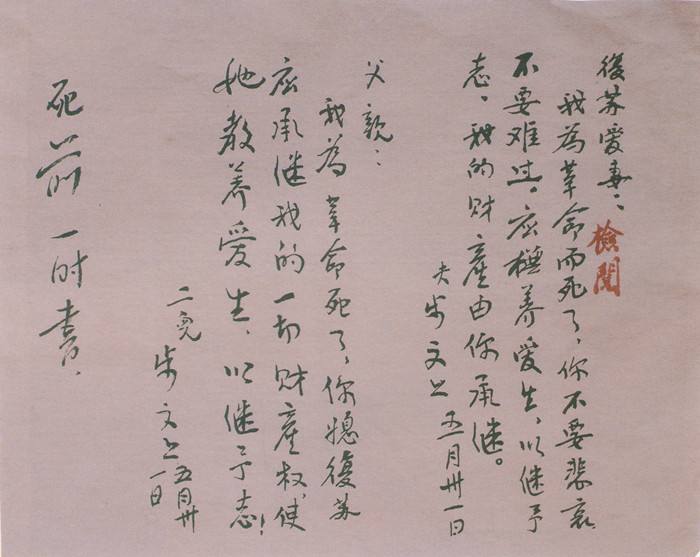 復苏愛妻：
檢閱
我為革命而死了，你不要悲哀
不要难过。应撫养愛生，以继予
志。我的财產由你承继。
夫步文上 五月卅一日
父親：
我為革命死了，你媳復苏
应承继我的一切财產权，使
她教养愛生，以继予志！
二兒 步文上 五月卅
一日
死前一时書.